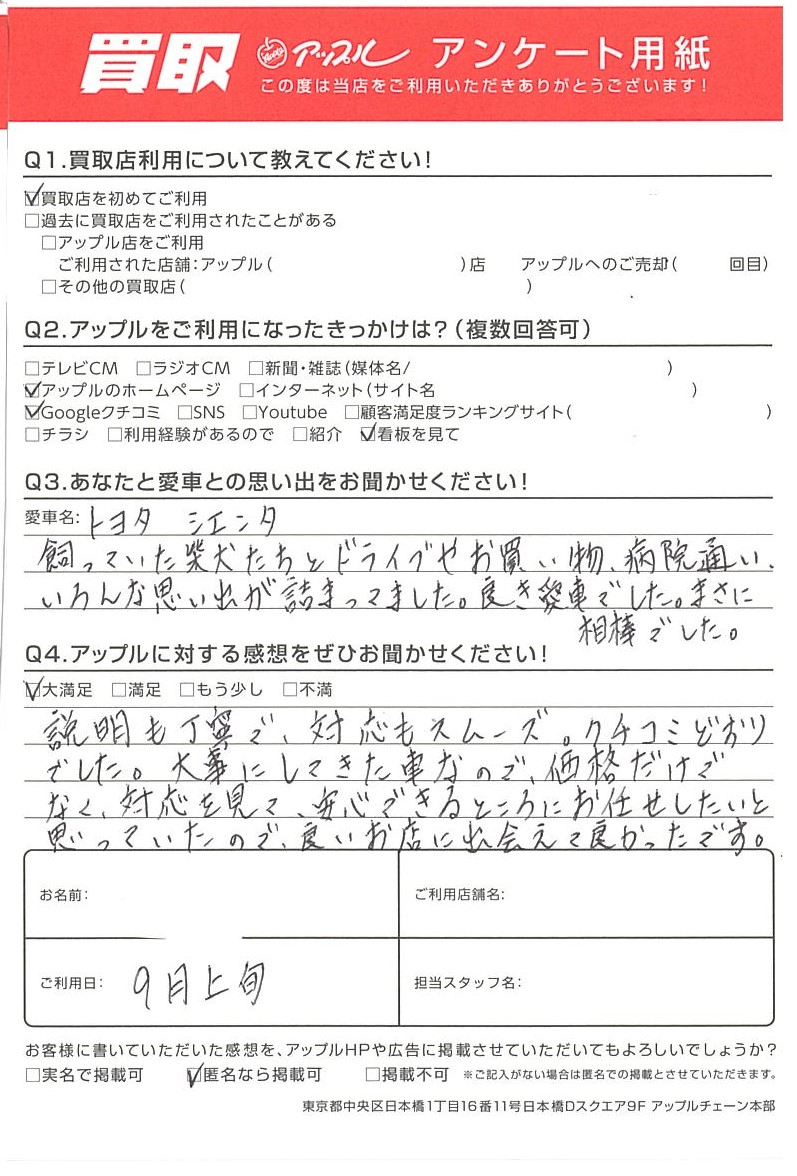 買取 アップル アンケート用紙
この度は当店をご利用いただきありがとうございます！
Q1.買取店利用について教えてください！
☑買取店を初めてご利用
□過去に買取店をご利用されたことがある
□アップル店をご利用
ご利用された店舗：アップル（　　　）店　アップルへのご売却（　　　回目）
□その他の買取店（　　　）
Q2.アップルをご利用になったきっかけは？（複数回答可）
□テレビCM　□ラジオCM　□新聞・雑誌（媒体名/　　　）
☑アップルのホームページ　□インターネット（サイト名　　　）
☑Googleクチコミ　□SNS　□Youtube　□顧客満足度ランキングサイト（　　　）
□チラシ　□利用経験があるので　□紹介　☑看板を見て
Q3.あなたと愛車との思い出をお聞かせください！
愛車名：トヨタ　シエンタ
飼っていた柴犬たちとドライブやお買い物、病院通い、
いろんな思い出が詰まってました。良き愛車でした。まさに
相棒でした。
Q4.アップルに対する感想をぜひお聞かせください！
☑大満足　□満足　□もう少し　□不満
説明も丁寧で、対応もスムーズ。クチコミどおり
でした。大事にしてきた車なので、価格だけで
なく、対応を見て、安心できるところにお任せしたいと
思っていたので、良いお店に出会えて良かったです。
お名前：　ご利用店舗名：
ご利用日：9月上旬　担当スタッフ名：
お客様に書いていただいた感想を、アップルHPや広告に掲載させていただいてもよろしいでしょうか？
□実名で掲載可　☑匿名なら掲載可　□掲載不可　※ご記入がない場合は匿名での掲載とさせていただきます。
東京都中央区日本橋1丁目16番11号日本橋Dスクエア9F アップルチェーン本部